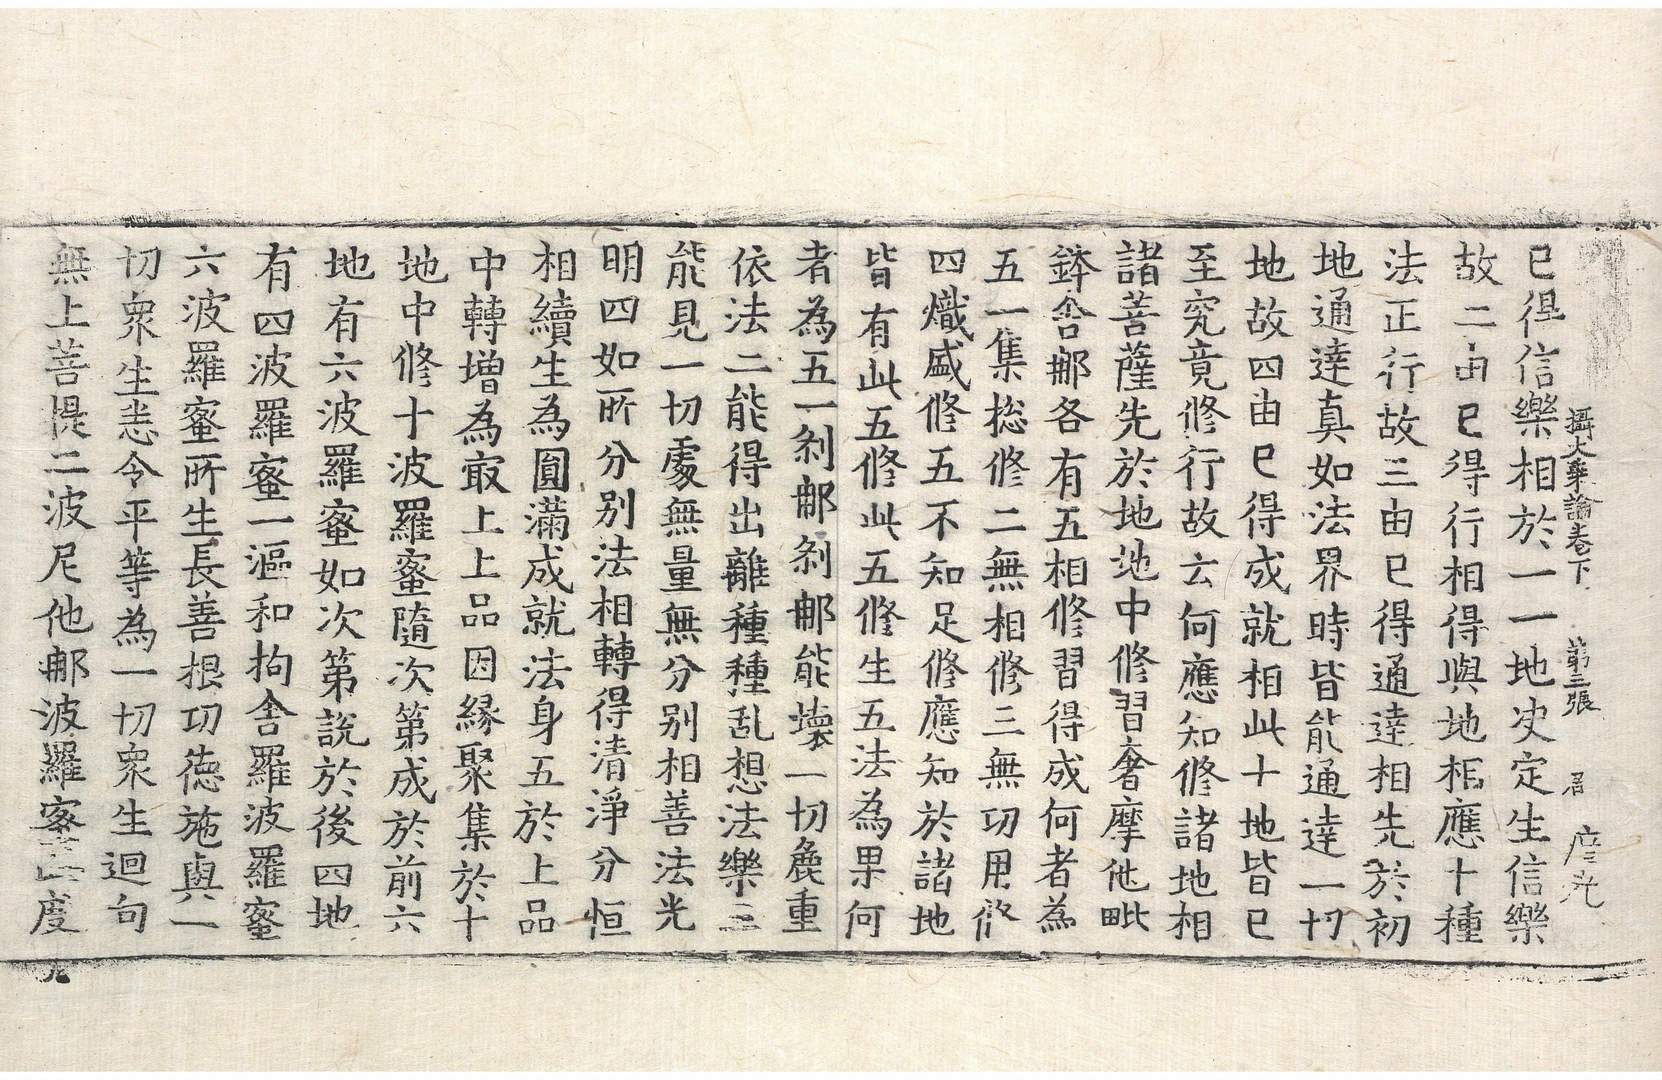 攝大乘論卷下 第三張
已得信樂相於一一地决定生信樂
故二由已得行相得與地相應十種
法正行故三由已得通達相先於初
地通達真如法界時皆能通達一切
地故四由已得成就相此十地皆已
至究竟修行故云何應知修諸地相
諸菩薩先於地地中修習奢摩他毗
鉢舍那各有五相修習得成何者為
五一集揔修二無相修三無功用修
四熾盛修五不知足修應知於諸地
皆有此五修此五修生五法為果何
者為五一剎那剎那能壞一切麁重
依法二能得出離種種乱想法樂三
能見一切處無量無分别相善法光
明四如所分别法相轉得清淨分恒
相續生為圓滿成就法身五於上品
中轉增為最上上品因緣聚集於十
地中修十波羅蜜隨次第成於前六
地有六波羅蜜如次第說於後四地
有四波羅蜜一漚和拘舍羅波羅蜜
六波羅蜜所生長善根功德施與一
切衆生悉令平等為一切衆生迴向
無上菩提二波尼他那波羅蜜此度